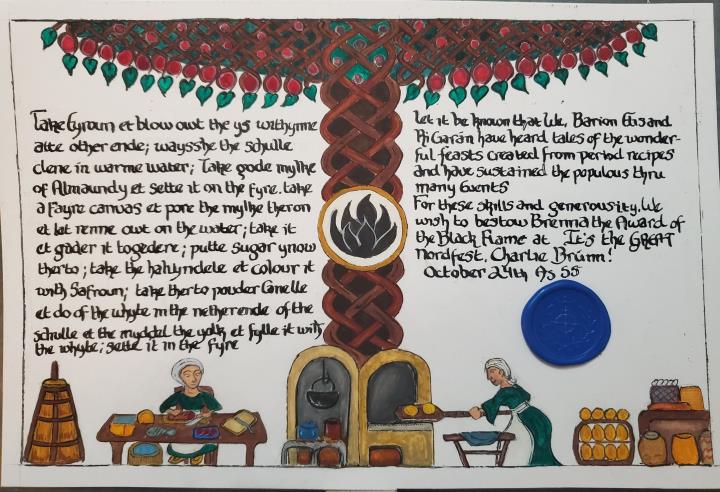 Take Eyroun et blow owt the ys withynne
atte other ende; waysshe the schulle
clene in warme water; Take gode mylke
of Almaundys et sette it on the fyre. take
a fayre canvas et pore the mylke theron
et lat renne owt on the water; take it
et gader it togedere; putte sugar ynow
therto; take the halvyndele et colour it
with Safroun; take therto powder Canelle
et do of the whyte in the netherende of the
schulle et the myddel the yolk et fylle it with
the whyte; sette it in the fyre
Let it be known that We, Barion and
Ri Garán have heard tales of the wonder-
ful feasts created from period recipes
and have sustained the populous thru
many Events
For these skills and generousity, We
wish to bestow Brenna the Award of
the Black Flame at It's the GREAT
Nordfest, Charlie Brünn!
October 24th As 55